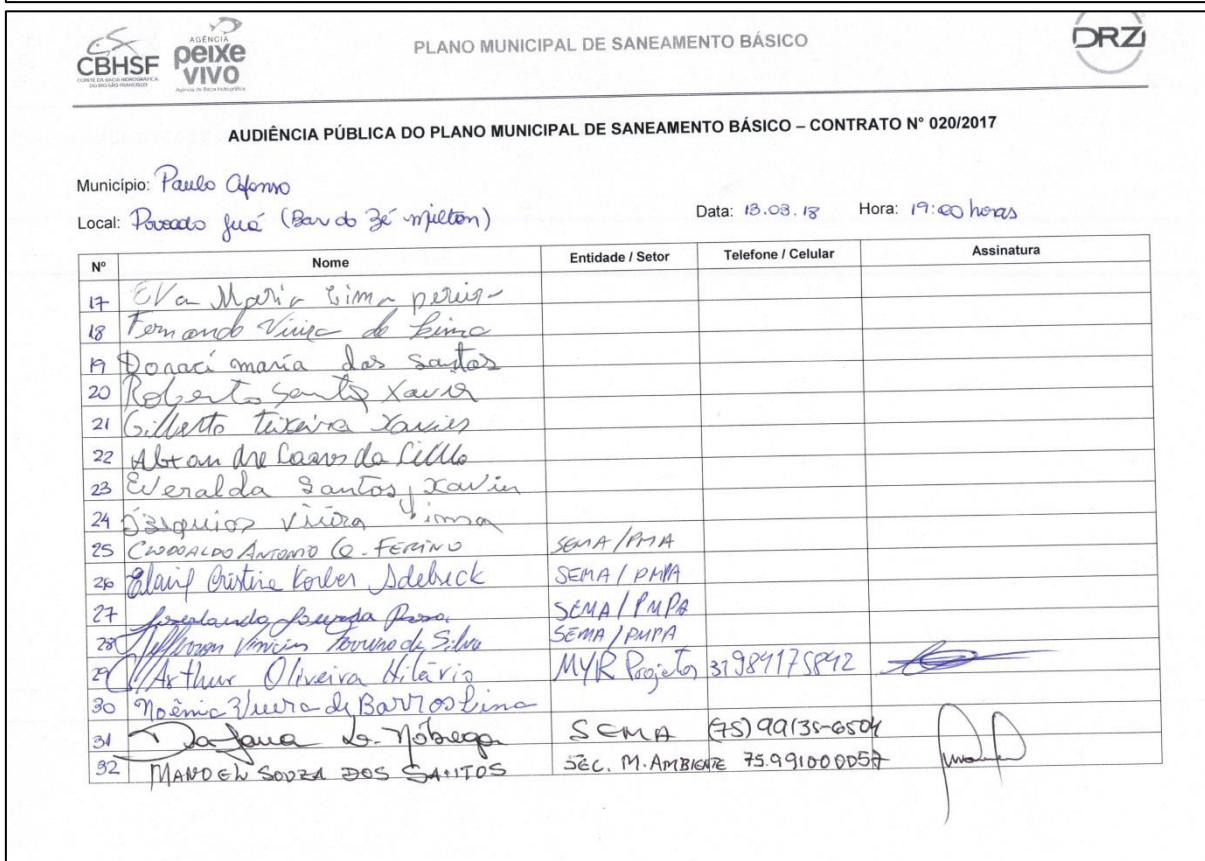 CBHSF
COMITÊ DA BACIA HIDROGRÁFICA
DO RIO SÃO FRANCISCO
AGÊNCIA
peixe
VIVO
Agência de Bacia Hidrográfica
PLANO MUNICIPAL DE SANEAMENTO BÁSICO
DRZ
AUDIÊNCIA PÚBLICA DO PLANO MUNICIPAL DE SANEAMENTO BÁSICO – CONTRATO N° 020/2017
Município: Paulo Afonso
Local: Povoado Juá (Bar do Zé Milton) Data: 13.03.18 Hora: 19:00 horas
Nº Nome Entidade / Setor Telefone / Celular Assinatura
17 Eva Maria Lima
18 Fernando Vieira de Lima
19 Donaci maria dos Santos
20 Roberto Santos Xavier
21 Gilberto Teixeira Xavier
22
23 Everalda Santos Xavier
24 Vieira Lima
25 Antonio FERINO SEMA/PMA
26 Cristine SEMA/PMPA
27 SEMA/PMPA
28 Vinicius da Silva SEMA/PMPA
29 Arthur Oliveira Hilário MYR Projetos 31984175842
30 Noêmia Vieira de Barros Lima
31 Nóbrega SEMA (75) 99135-6504
32 MANOEL SOUZA DOS SANTOS SEC. M. AMBIENTE 75.991000057